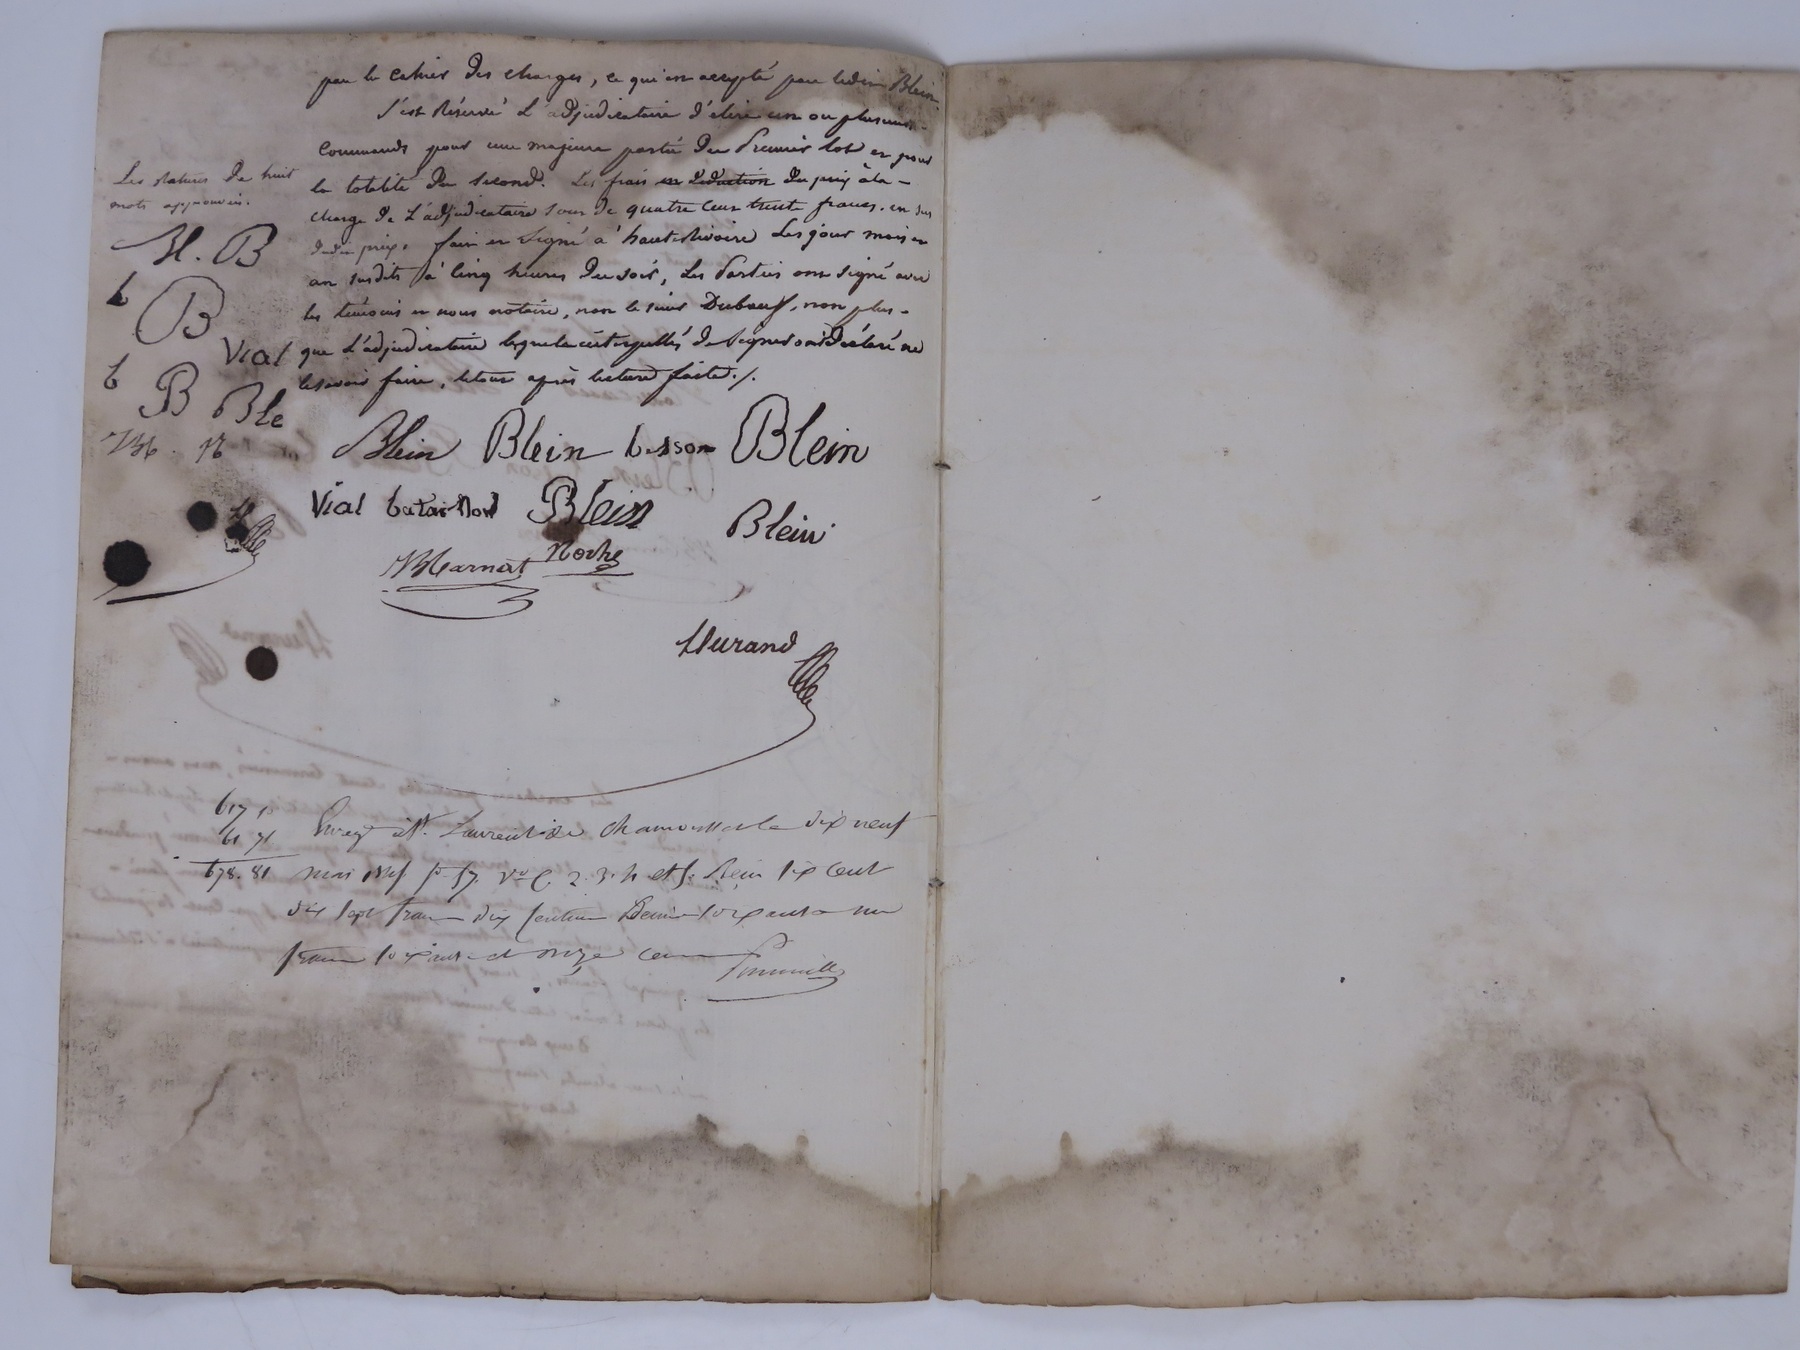 par le Cahier des charges, ce qui est accepté par ledit Blein.
S'est Réservé L'adjudicataire d'élire un ou plusieurs
commands pour une majeure partie du Premier lot et pour
la totalité du second. Les frais en déduction du prix à la
charge de L'adjudicataire sont de quatre cent trente francs. en sus
dudit prix. fait et signé à haute Rivoire Les jour mois et
an susdits à Cinq heures du soir, Les Parties ont signé avec
les témoins et nous notaire, non le sieur Duboeuf, non plus
que L'adjudicataire lesquels interpellés de signer ont déclaré ne
le savoir faire, le tout après lecture faite ./.
Les Ratures de huit
mots approuvées.
H. B
b
B
Vial
b
B Ble
Blein Blein besson Blein
Vial bataillon Blein Blein
Marnat Roche
Durand
617 10
61 71
678. 81
Enreg. à St. Laurent de Chamousset le dix neuf
mai f° 57. V° C. 2. 3. 4 et 5. Reçu six cent
dix sept francs dix centimes Décime soixante un
francs soixante et onze cent